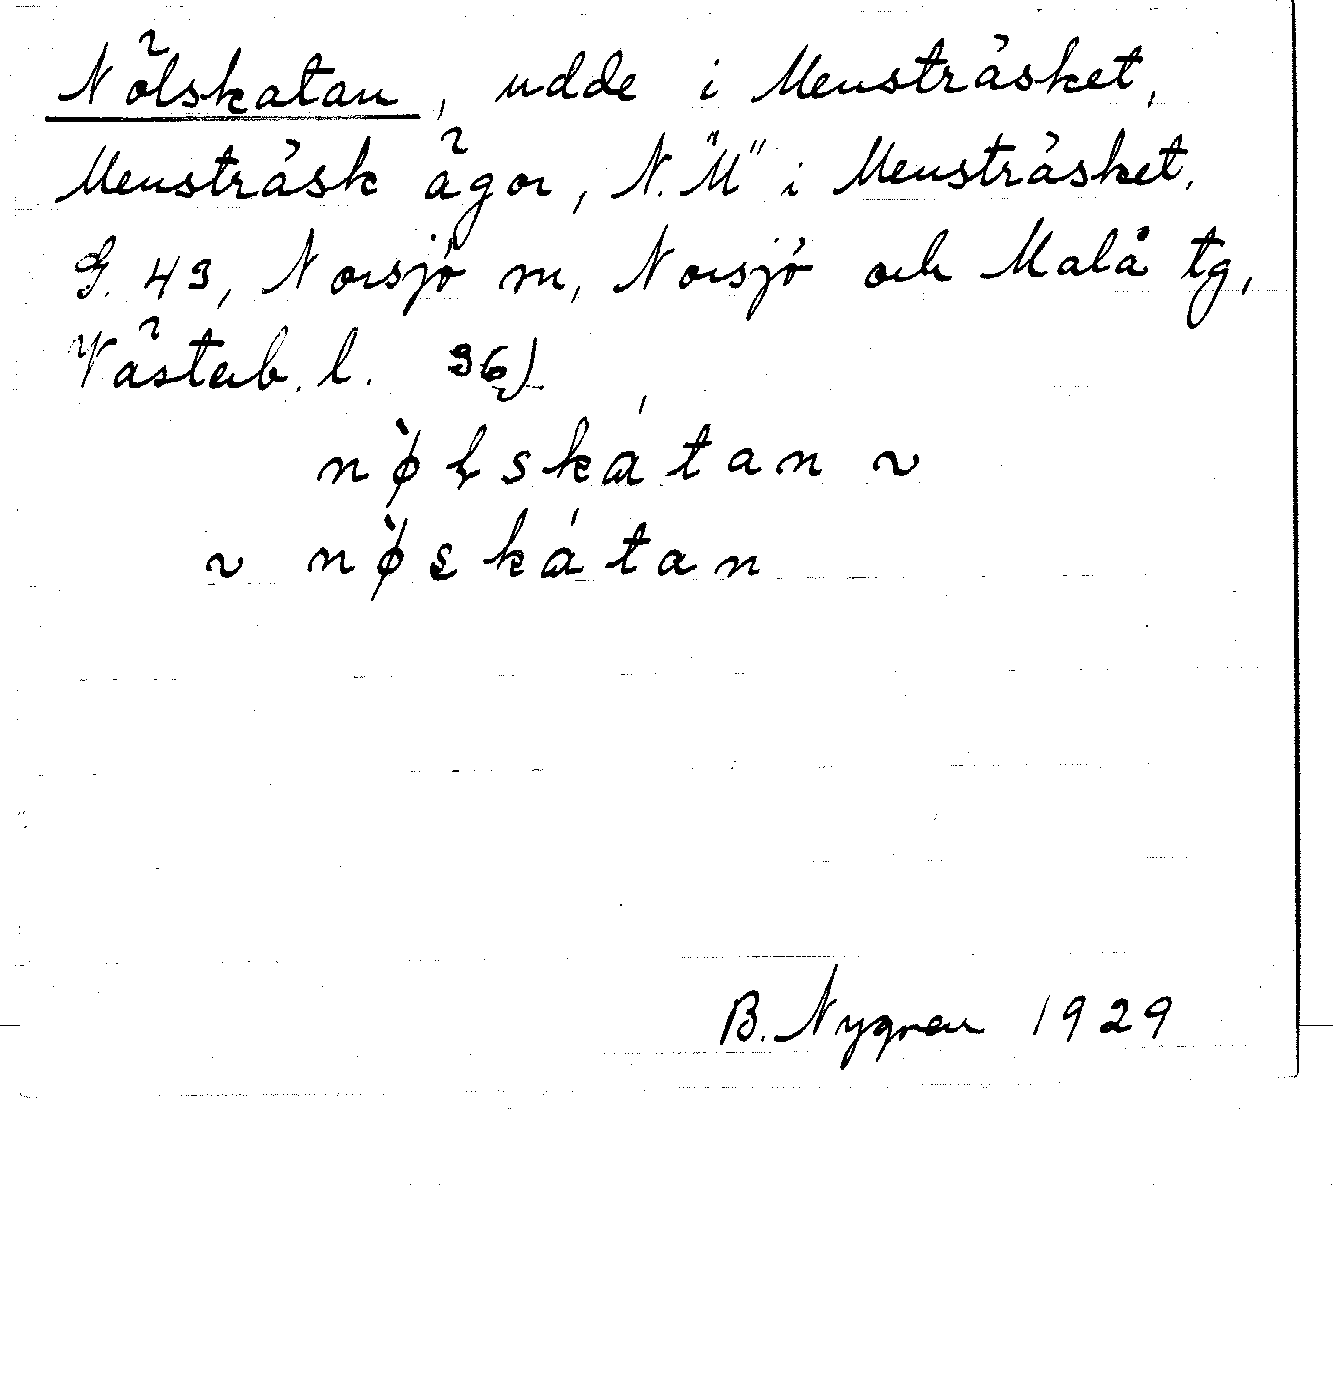 Nölskatan, udde i Mensträsket,
Mensträsk ägor, N. "M" i Mensträsket.
G. 43, Norsjö sn, Norsjö och Malå tg,
Västerb. l. 36)
nø̀lskátan ~
~ nø̀skátan
B. Nygren 1929